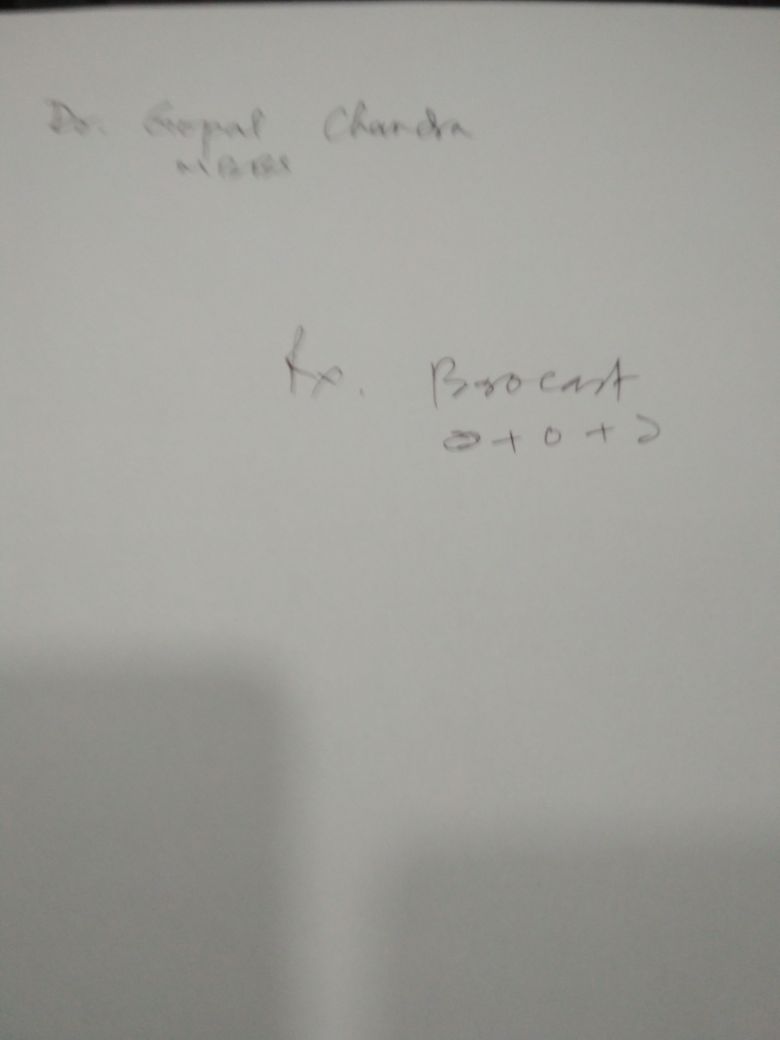 Dr. Gopal Chandra
MBBS
Rx. Brocast
0 + 0 + ১